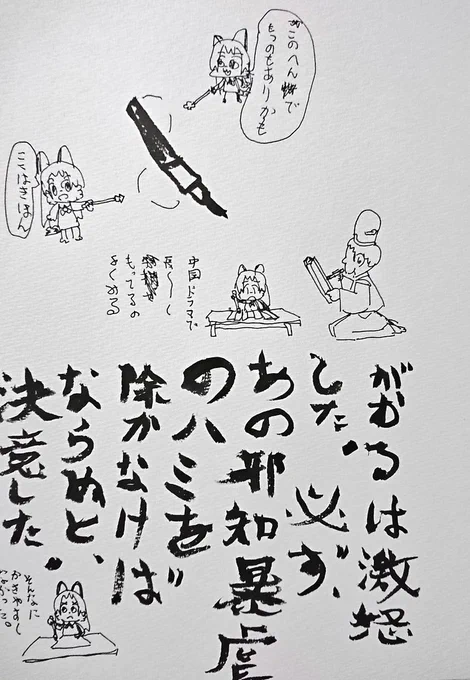 このへん
で
もつのもありかも
ここはきほん
中国ドラマで
もってるの
をくめる
がむるは激怒
した。必ず、
あの邪知暴虐
のハミを
除かなければ
ならぬと、
決意した。
そんなに
かきやすく
なかった。